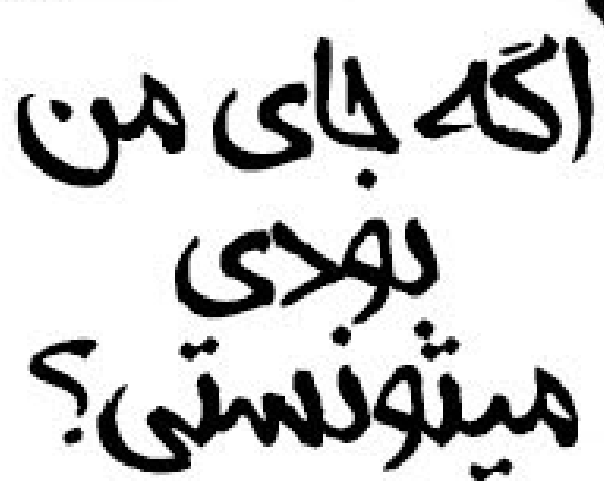 اگه جای من
بودی
میتونستی؟